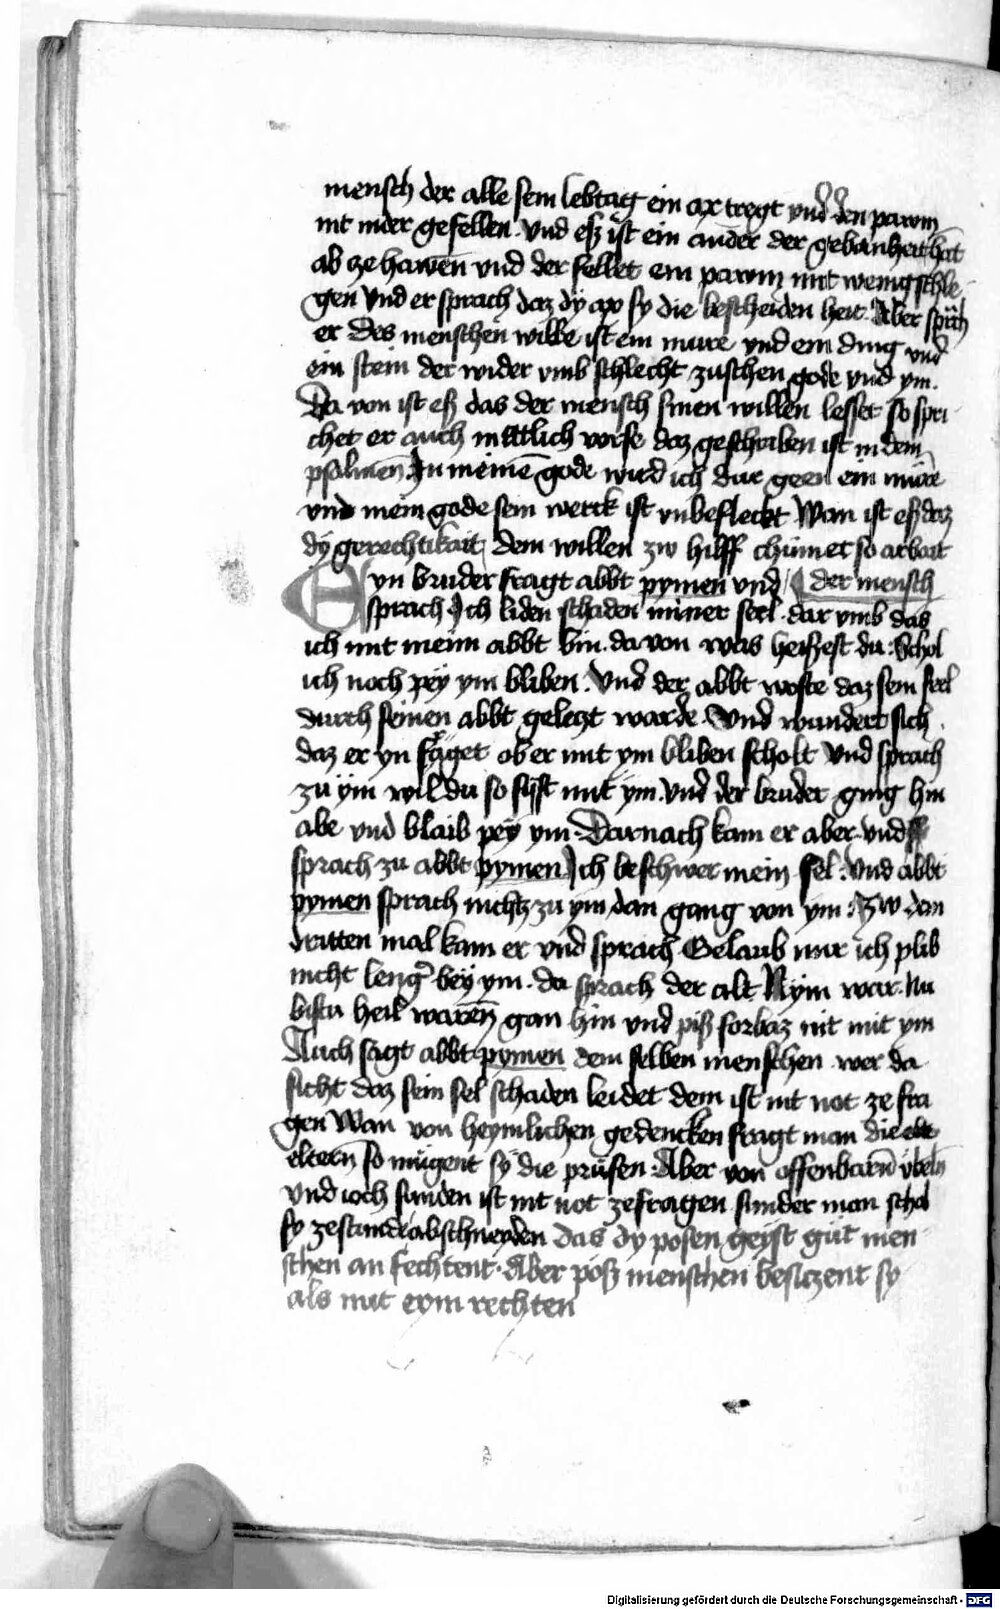 mensch der alle sein lebtag ein ax tregt vnd den pawm
nit nider gefellen. Vnd esz ist ein ander der gebanheit hat
ab ze hawen vnd der fellet ein pawm mit wenig schle
gen Vnd er sprach daz dy ax sy die bescheiden heit. Aber sprich
er Des menschen wille ist ein mure vnd ein ding vnd
ein stein der wider vmb schlecht zuschen gode vnd ym.
Da von ist esz das der mensch sinen willen lesset so spri
chet er auch mittlich vorse daz geschriben ist in dem
psalmen In meinē gode wird ich dur geen ein mure
vnd mein gode sein werck ist vnbefleckt Wan ist esz daz
dy gerechtikait dem willen zw hilff chumet so arbait
Eyn bruder fragt abbt pymen vnd der mensch
sprach Ich liden schaden miner seel. dar vmb das
ich mit meim abbt bin. da von was heiszest du. Schol
ich noch pey ym bliben. Vnd der abbt woste daz sein seel
durch seinen abbt geleczt warde. Vnd wundert sich
daz er yn fraget ob er mit ym bliben scholt Vnd sprach
zu ym wil du so sijst mit ym. Vnd der bruder ging hin
abe vnd blaib pey ym. Darnach kam er aber. vnd
sprach zu abbt pymen Ich beschwer mein sel. Vnd abbt
pymen sprach nichtz zu ym dan gang von ym. Zw dem
dritten mal kam er vnd sprach Gelaub mir ich plib
nicht leng̃ bey ym. da sprach der alt Nym war. Nu
bistu heil warē gan hin vnd pisz forbaz nit mit ym
Auch sagt abbt pymen dem selben menschen wer da
sicht daz sein sel schaden leidet dem ist nit not ze fra
gen Wan von heymlichen gedencken fragt man die
eltern so mügent sy die prüfen. Aber von offenbarn vbeln
vnd ioch sunden ist nit not ze fragen. sunder man schol
sy zestund abschneyden das dy posen geyst gut men
schen an fechtent. Aber posz menschen besiczent sy
als mit eym rechten
Digitalisierung gefördert durch die Deutsche Forschungsgemeinschaft - DFG